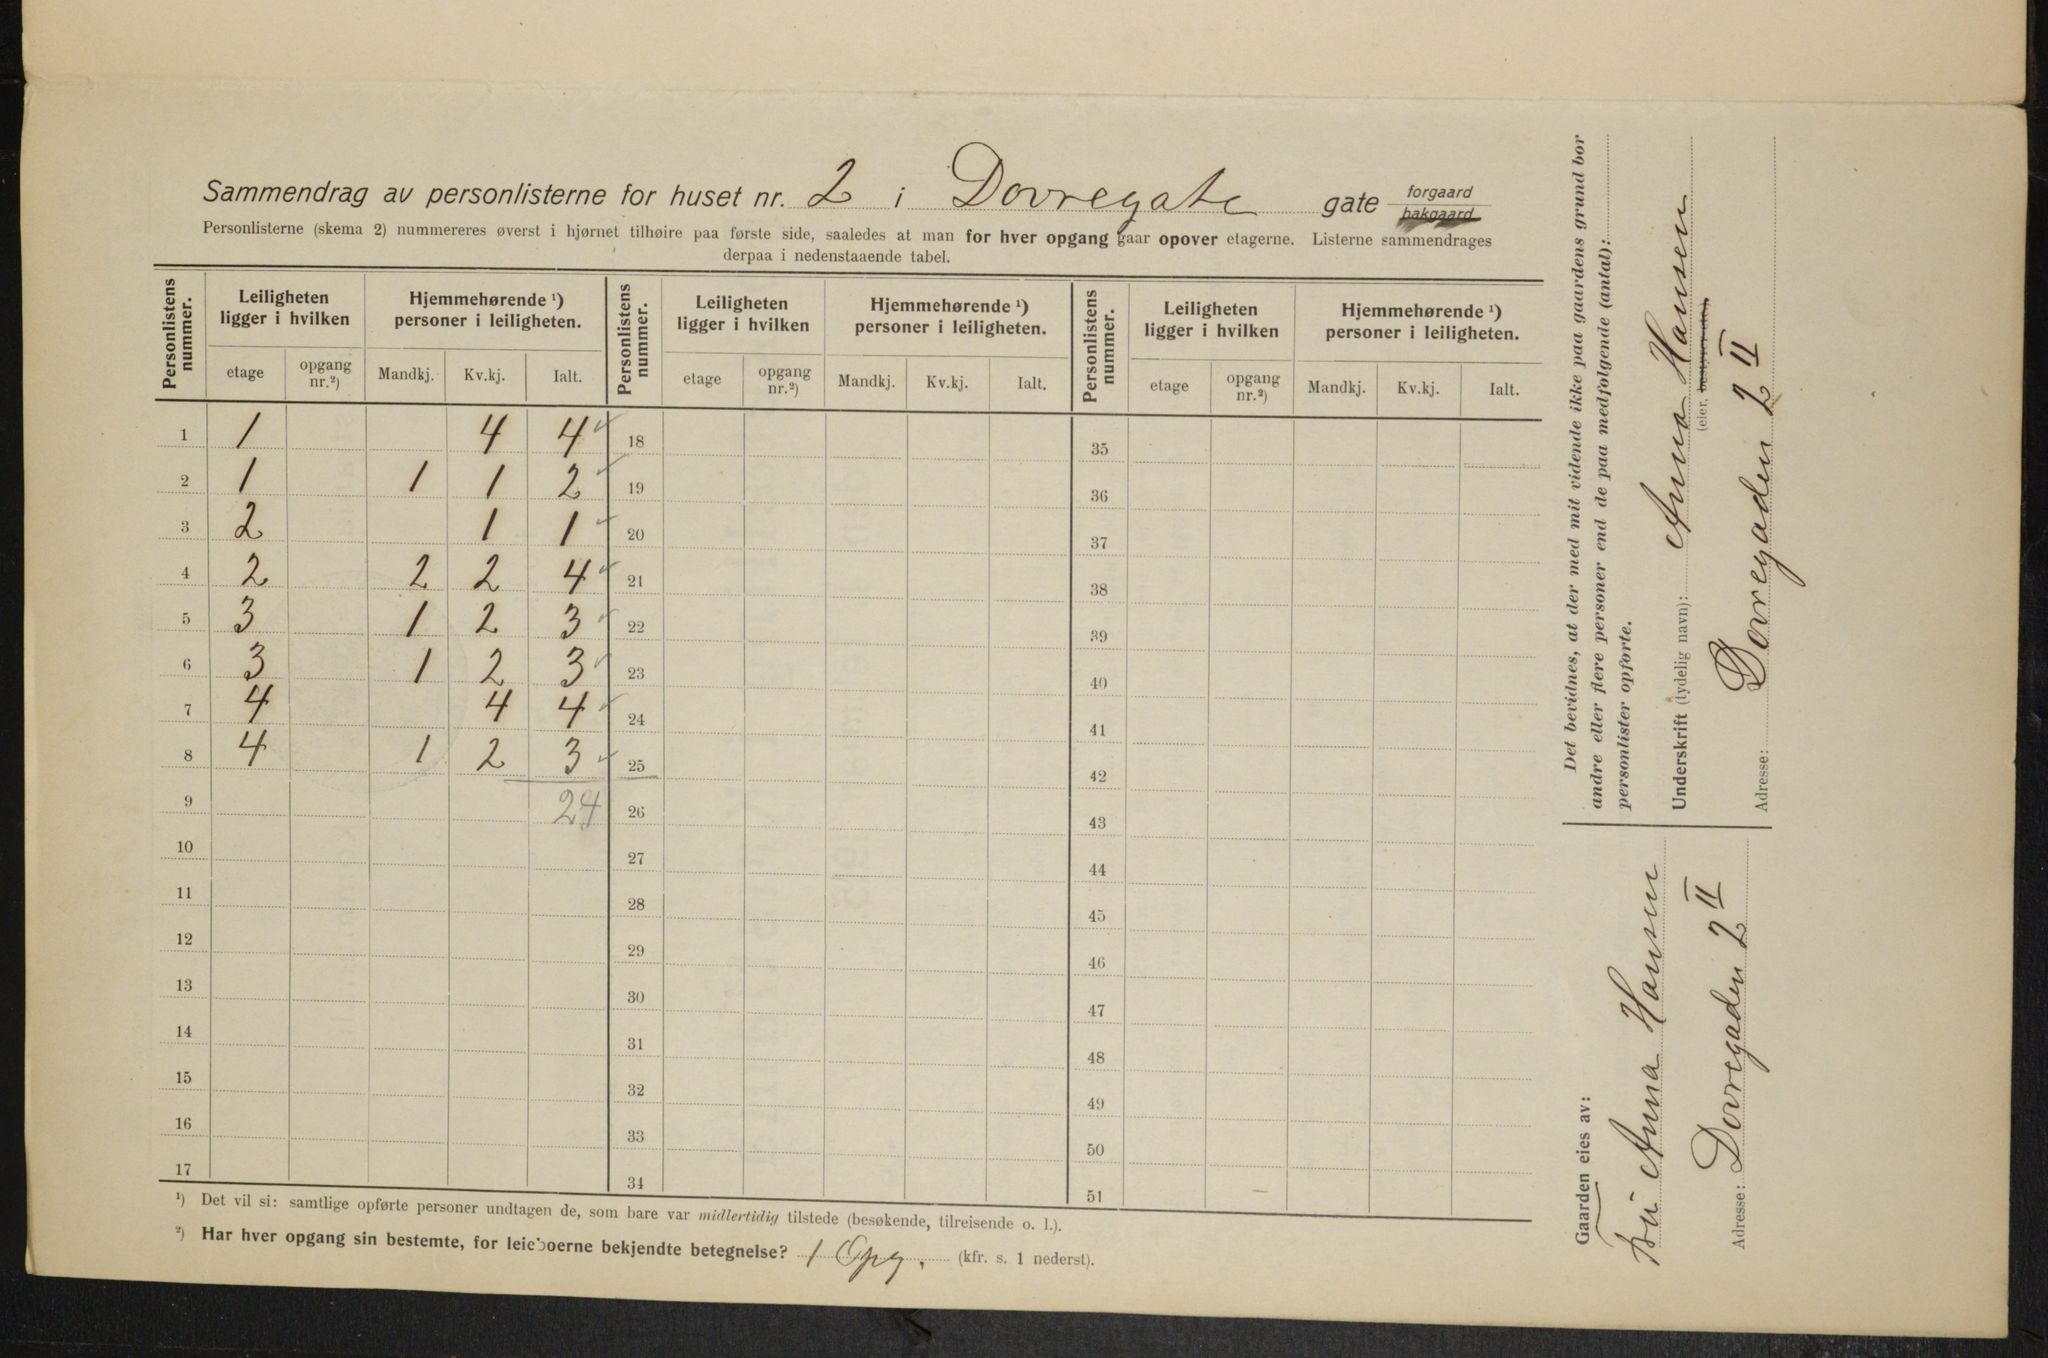 Sammendrag av personlisterne for huset nr. 2 i Dovregate gate forgaard bakgaard
Personlisterne (skema 2) nummereres øverst i hjørnet tilhøire paa første side, saaledes at man for hver opgang gaar opover etagerne. Listerne sammendrages
derpaa i nedenstaaende tabel.
Personlistens nummer. Leiligheten ligger i hvilken Hjemmehørende ¹) personer i leiligheten. Personlistens nummer. Leiligheten ligger i hvilken Hjemmehørende ¹) personer i leiligheten. Personlistens nummer. Leiligheten ligger i hvilken Hjemmehørende ¹) personer i leiligheten.
etage opgang nr.²) Mandkj. Kv.kj. Ialt. etage opgang nr.²) Mandkj. Kv.kj. Ialt. etage opgang nr.²) Mandkj. Kv.kj. Ialt.
1 1 4 4 18 35
2 1 1 1 2 19 36
3 2 1 1 20 37
4 2 2 2 4 21 38
5 3 1 2 3 22 39
6 3 1 2 3 23 40
7 4 4 4 24 41
8 4 1 2 3 25 42
9 24 26 43
10 27 44
11 28 45
12 29 46
13 30 47
14 31 48
15 32 49
16 33 50
17 34 51
¹) Det vil si: samtlige opførte personer undtagen de, som bare var midlertidig tilstede (besøkende, tilreisende o. l.).
²) Har hver opgang sin bestemte, for leieboerne bekjendte betegnelse? 1 Opg. (kfr. s. 1 nederst).
Det bevidnes, at der med mit vidende ikke paa gaardens grund bor
andre eller flere personer end de paa medfølgende (antal):
personlister opførte.
Underskrift (tydelig navn): Anna Hansen
(eier, bestyrer etc.)
Adresse: Dovregaden 2 II
Gaarden eies av:
Fru Anna Hansen
Adresse: Dovregaden 2 II